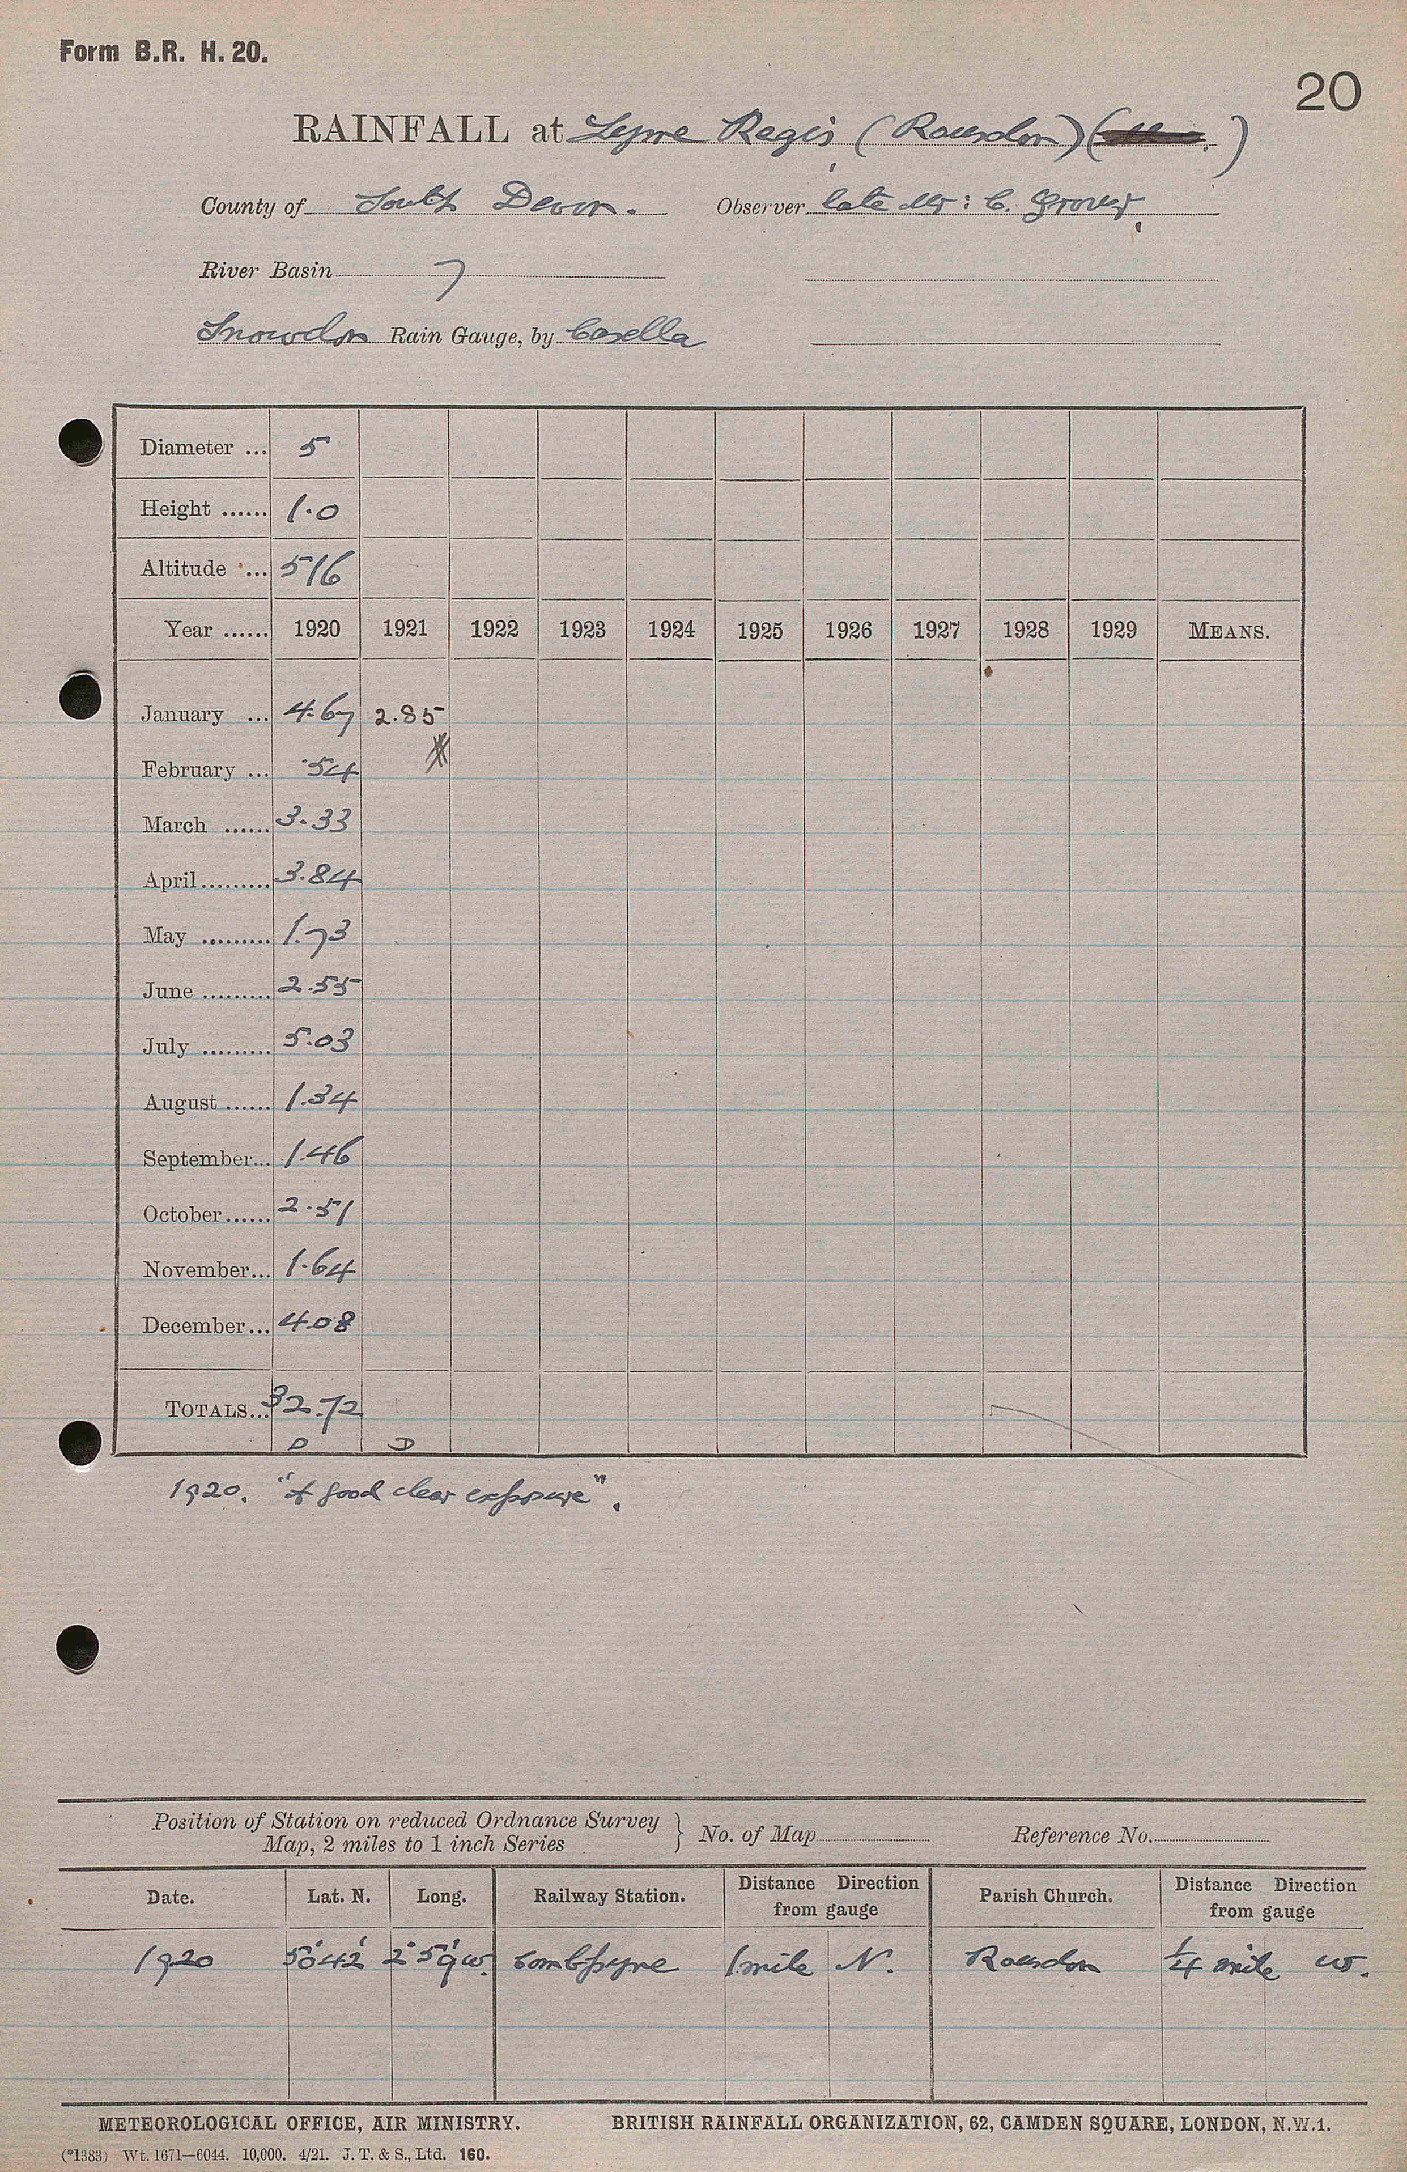 Form B.R. H. 20.
20
RAINFALL at Lyme Regis (Rousdon) ( )
County of South Devon. Observer late Mr: C. Grover.
River Basin 7
Snowdon Rain Gauge, by Casella
Diameter ... 5
Height ...... 1.0
Altitude ... 516
Year ...... 1920 1921 1922 1923 1924 1925 1926 1927 1928 1929 MEANS.
January ... 4.67 2.85
February ... .54 *
March ...... 3.33
April ......... 3.84
May ......... 1.73
June ......... 2.55
July ......... 5.03
August ...... 1.34
September... 1.46
October ...... 2.51
November... 1.64
December... 4.08
TOTALS... 32.72
D D
1920. "A good clear exposure".
Position of Station on reduced Ordnance Survey
Map, 2 miles to 1 inch Series } No. of Map Reference No.
Date. Lat. N. Long. Railway Station. Distance Direction from gauge Parish Church. Distance Direction from gauge
1920 50°42' 2°59'W. Combpyne 1 mile N. Rousdon 1/4 mile W.
METEOROLOGICAL OFFICE, AIR MINISTRY. BRITISH RAINFALL ORGANIZATION, 62, CAMDEN SQUARE, LONDON, N.W.1.
(*1383) Wt. 1671—6044. 10,000. 4/21. J. T. & S., Ltd. 160.